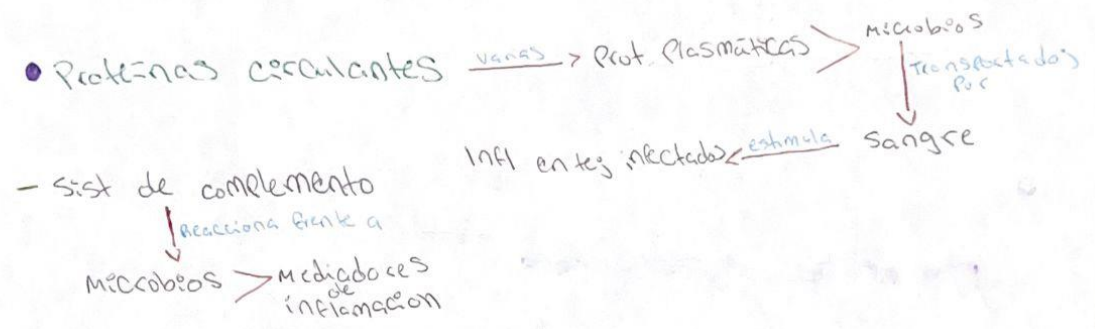 Proteinas circulantes varias > Prot. Plasmáticas > Microbios
Transportados
Por
Sangre
estimula
Infl en tej infectados
- Sist de complemento
Reacciona frente a
Microbios > Mediadores
de
inflamacion